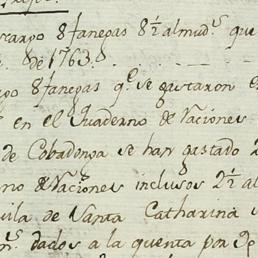 cargo 8 fanegas 8½ almud.s que
8. de 1763.
go 8 fanegas q.e se gastaron en
en el Quaderno de Raciones
de Cobadonga se han gastado 2
no de Raciones inclusos 2½ al
vila de Santa Catharina
n.s dados a la quenta por de